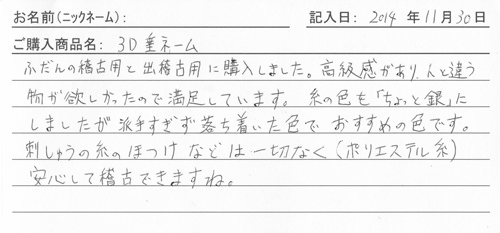 お名前(ニックネーム): 記入日: 2014 年 11月 30日
ご購入商品名: 3D垂ネーム
ふだんの稽古用と出稽古用に購入しました。高級感があり、人と違う
物が欲しかったので満足しています。糸の色も「ちょっと銀」に
しましたが派手すぎず落ち着いた色で おすすめの色です。
刺しゅうの糸のほつけ などは一切なく(ポリエステル糸)
安心して稽古できますね。